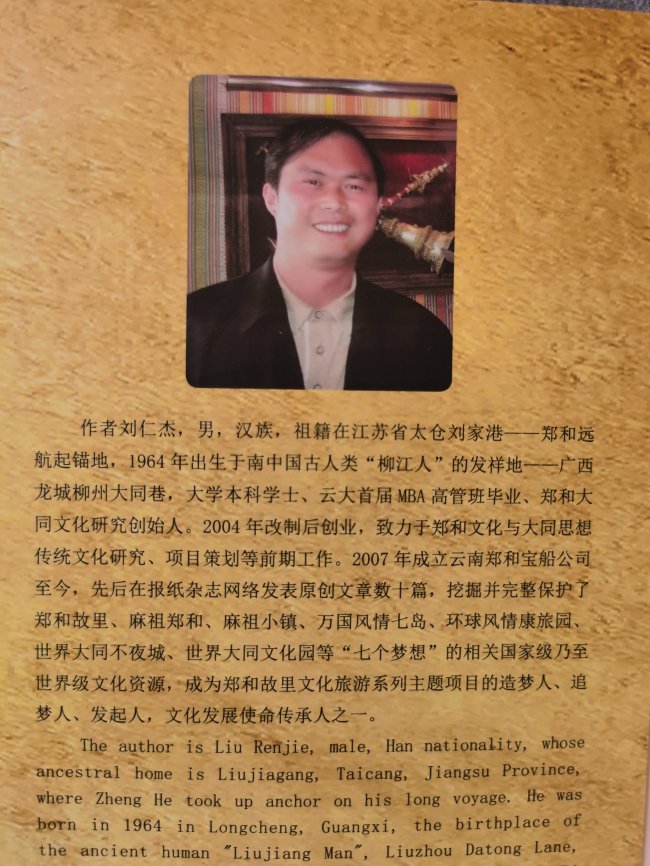 作者刘仁杰，男，汉族，祖籍在江苏省太仓刘家港——郑和远
航起锚地，1964年出生于南中国古人类“柳江人”的发祥地——广西
龙城柳州大同巷，大学本科学士、云大首届MBA高管班毕业、郑和大
同文化研究创始人。2004年改制后创业，致力于郑和文化与大同思想
传统文化研究、项目策划等前期工作。2007年成立云南郑和宝船公司
至今，先后在报纸杂志网络发表原创文章数十篇，挖掘并完整保护了
郑和故里、麻祖郑和、麻祖小镇、万国风情七岛、环球风情康旅园、
世界大同不夜城、世界大同文化园等“七个梦想”的相关国家级乃至
世界级文化资源，成为郑和故里文化旅游系列主题项目的造梦人、追
梦人、发起人，文化发展使命传承人之一。
The author is Liu Renjie, male, Han nationality, whose
ancestral home is Liujiagang, Taicang, Jiangsu Province,
where Zheng He took up anchor on his long voyage. He was
born in 1964 in Longcheng, Guangxi, the birthplace of
the ancient human "Liujiang Man", Liuzhou Datong Lane,